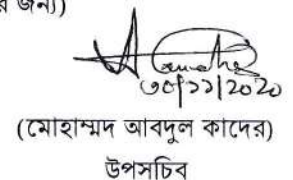 র জন্য)
৩০/১১/2020
(মোহাম্মদ আবদুল কাদের)
উপসচিব